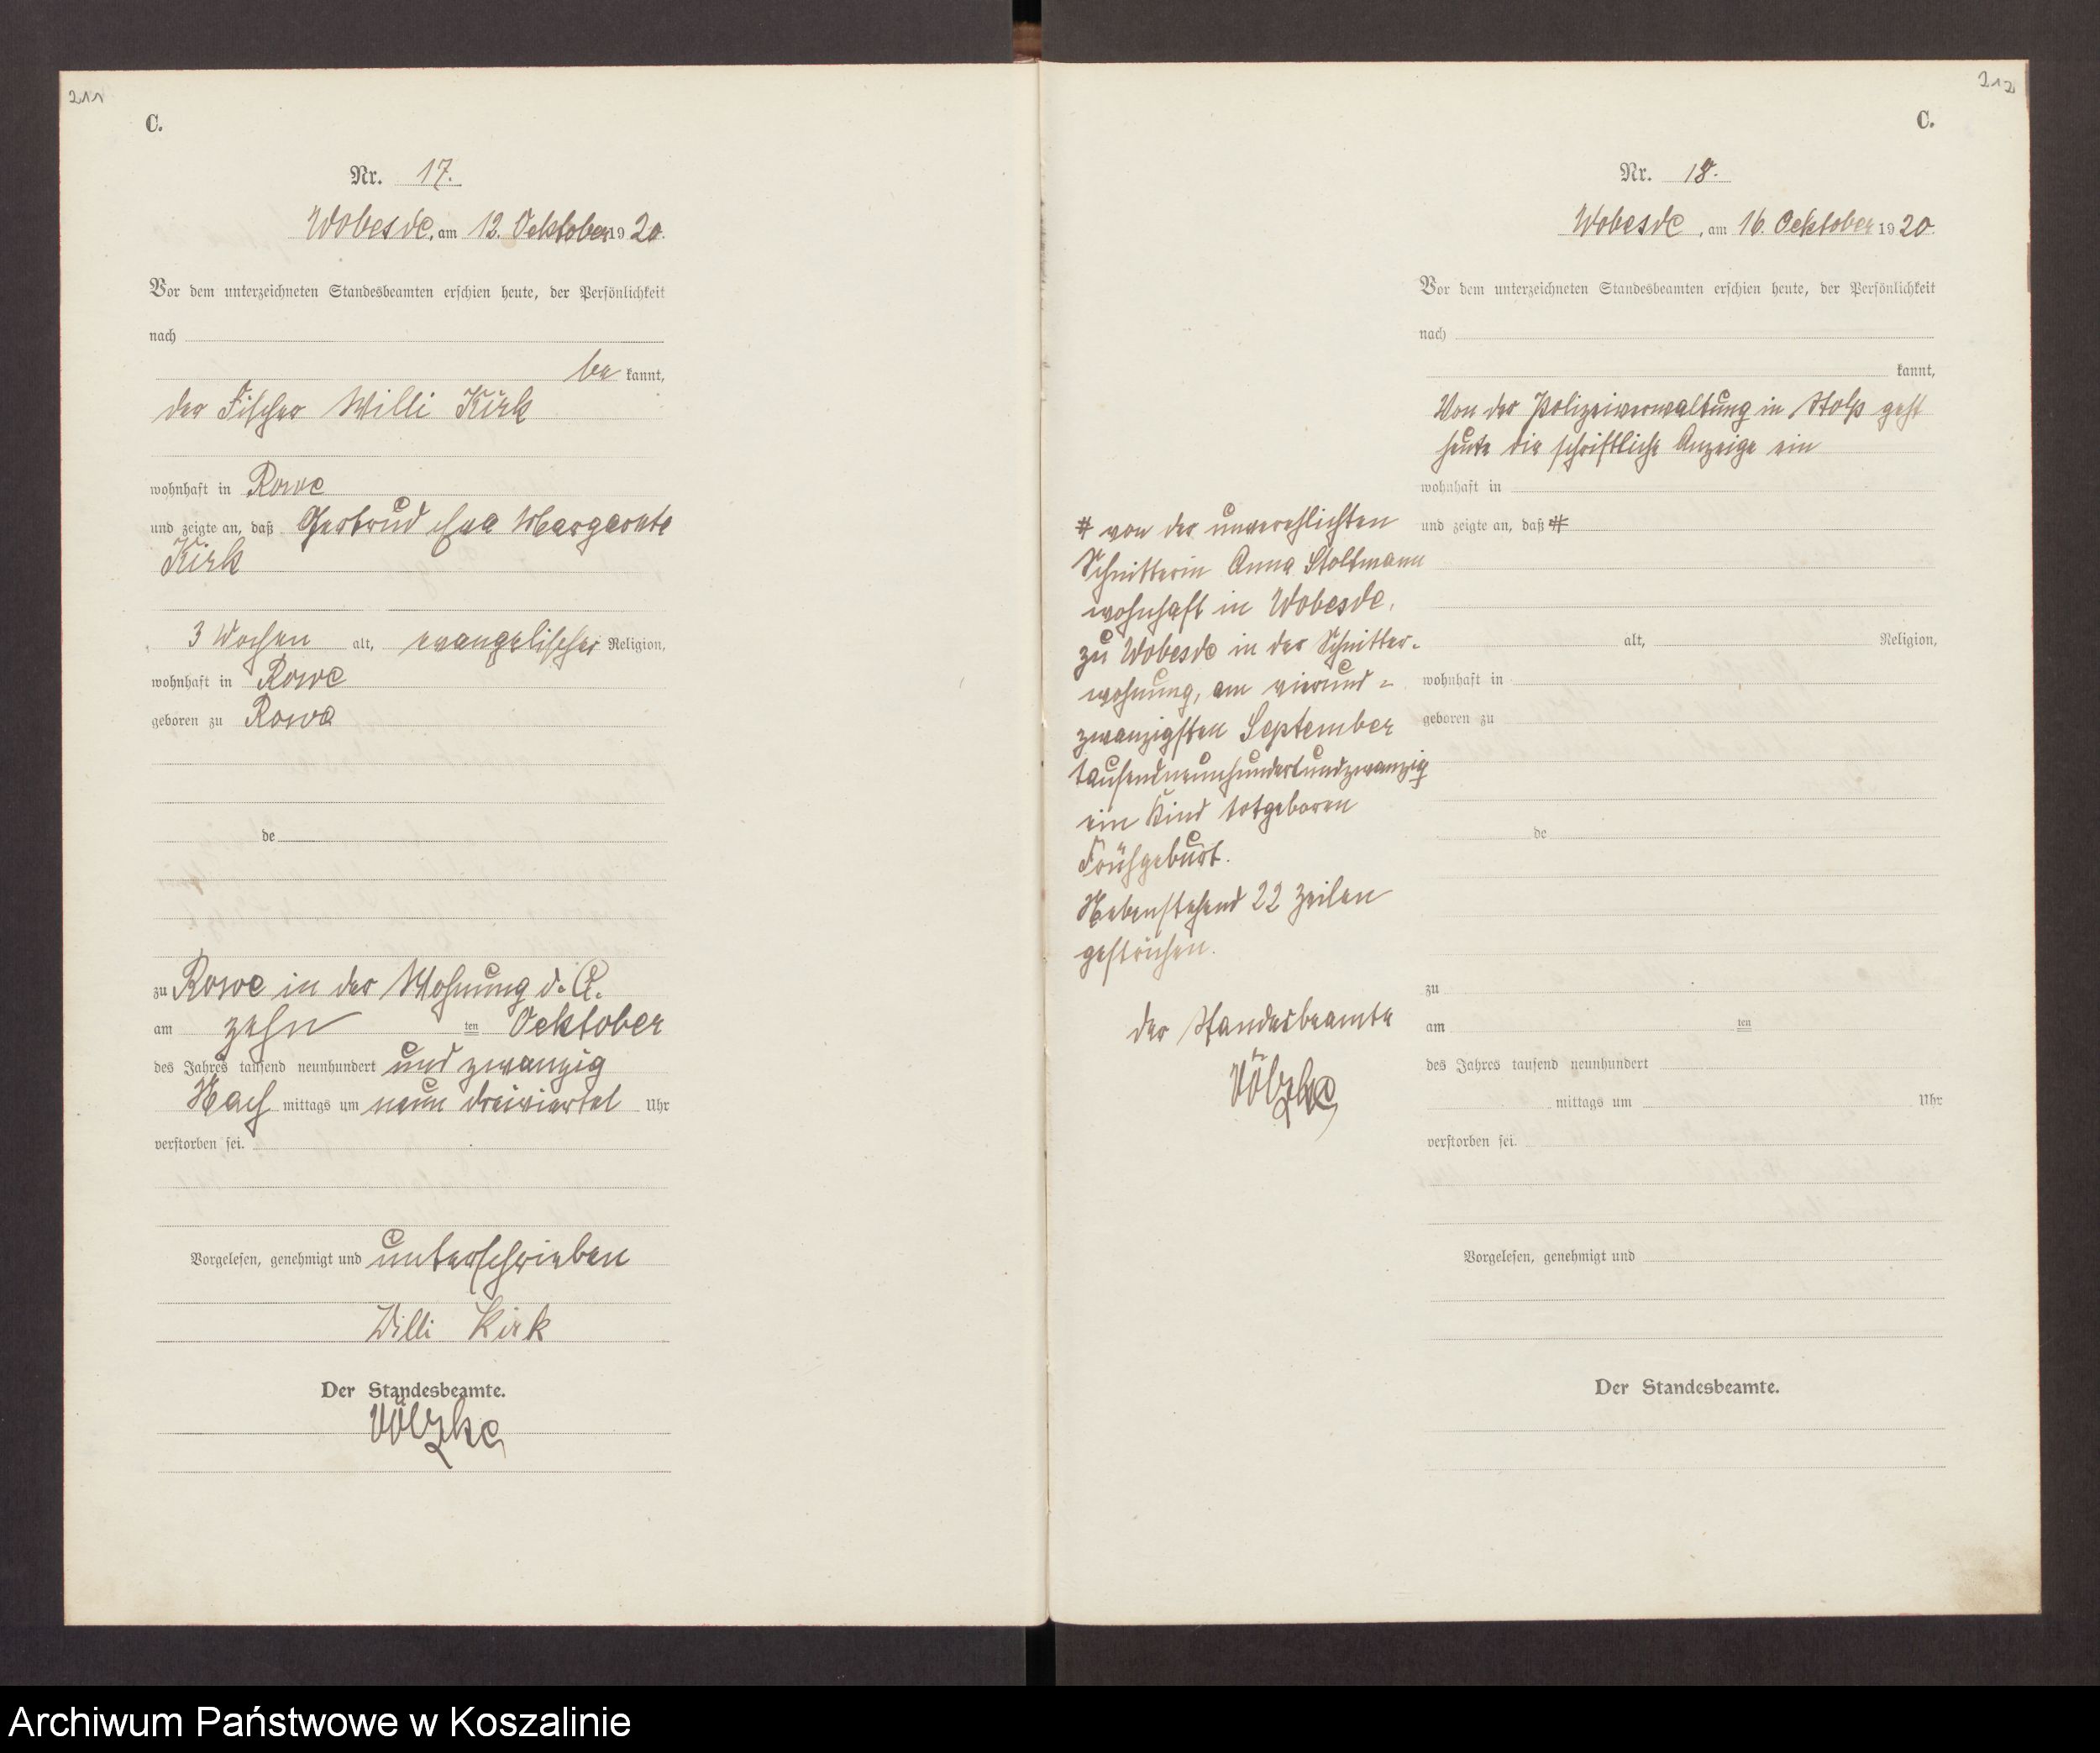 211
C.
Nr. 17.
Wobesde, am 12. Oektober 1920.
Vor dem unterzeichneten Standesbeamten erschien heute, der Persönlichkeit
nach
be kannt,
der Fischer Willi Kirk
wohnhaft in Rowe
und zeigte an, daß Gertrud Eva Margarete
Kirk
3 Wochen alt, evangelischer Religion,
wohnhaft in Rowe
geboren zu Rowe
de
zu Rowe in der Wohnung d. A.
am zehn ten Oektober
des Jahres tausend neunhundert und zwanzig
Nach mittags um neun dreiviertel Uhr
verstorben sei.
Vorgelesen, genehmigt und unterschrieben
Willi Kirk
Der Standesbeamte.
Völzke
212
C.
Nr. 18.
Wobesde, am 16. Oektober 1920.
Vor dem unterzeichneten Standesbeamten erschien heute, der Persönlichkeit
nach
kannt,
Von der Polizeiverwaltung in Stolp geht
heute die schriftliche Anzeige ein
wohnhaft in
und zeigte an, daß #
alt, Religion,
wohnhaft in
geboren zu
de
zu
am ten
des Jahres tausend neunhundert
mittags um Uhr
verstorben sei.
Vorgelesen, genehmigt und
Der Standesbeamte.
# von der unverehlichten
Schnitterin Anna Stoltmann
wohnhaft in Wobesde,
zu Wobesde in der Schnitter-
wohnung, am vierund=
zwanzigsten September
tausendneunhundertundzwanzig
ein Kind totgeboren
Frühgeburt.
Nebenstehend 22 Zeilen
gestrichen.
der Standesbeamte
Völzke
Archiwum Państwowe w Koszalinie